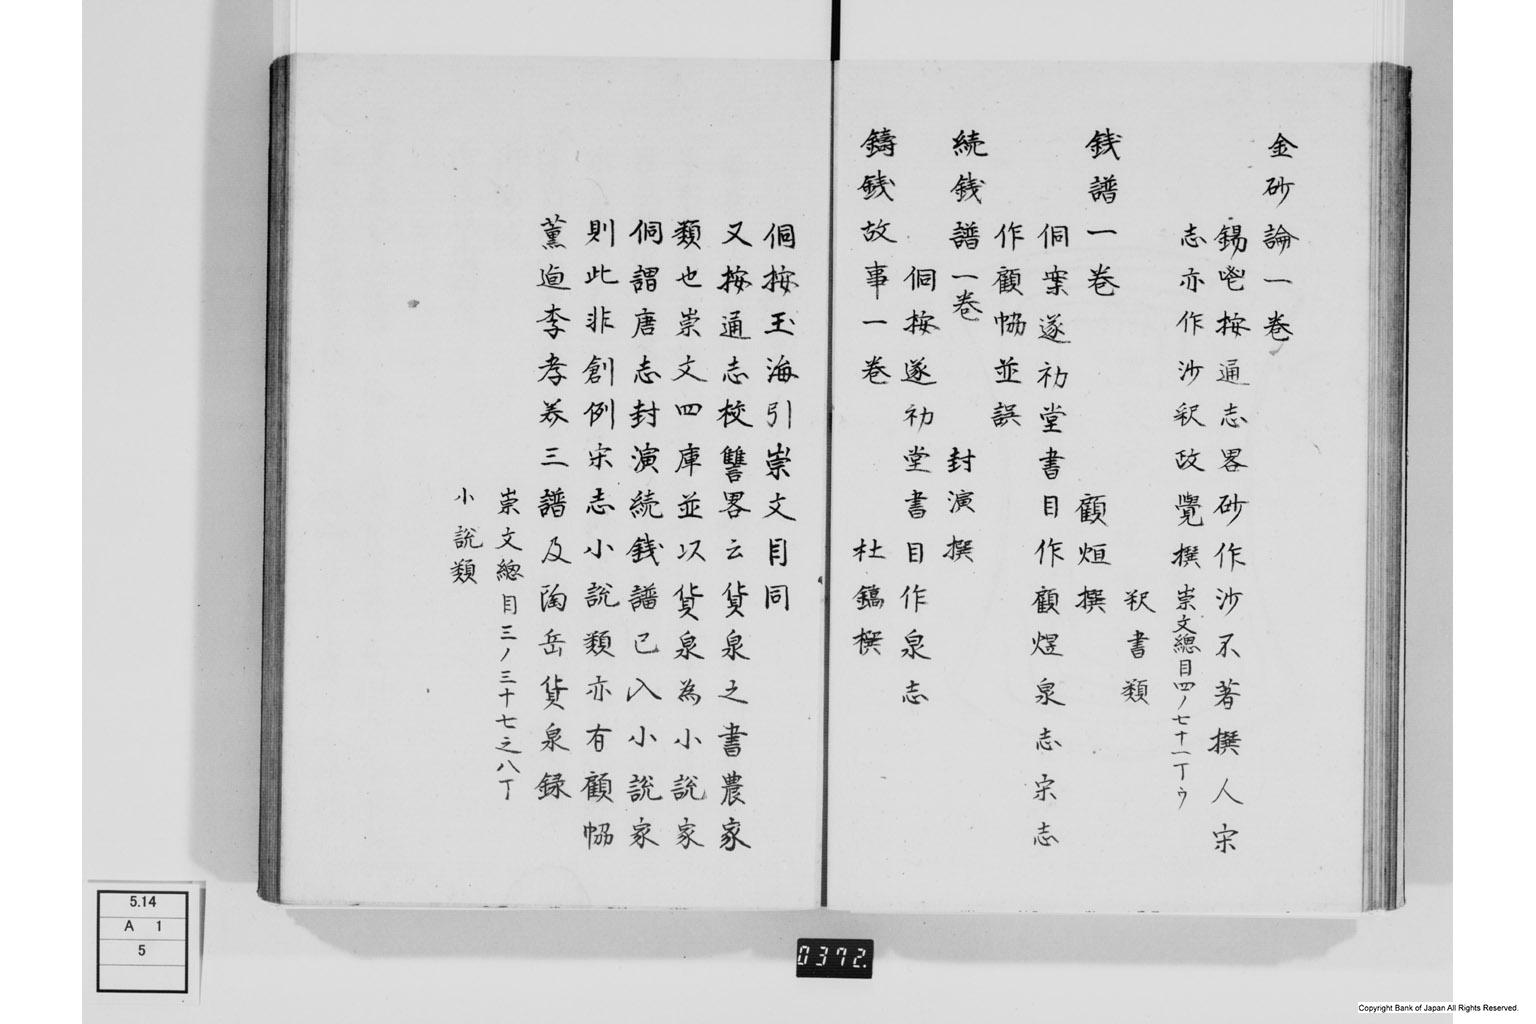 金砂論一巻
錫鬯按通志畧砂作沙不著撰人宋
志亦作沙釈政覺撰崇文總目四ノ七十一丁ウ
釈書類
銭譜一巻　顧烜撰
侗案遂初堂書目作顧煜泉志宋志
作顧恊並誤
続銭譜一巻　封演撰
侗按遂初堂書目作泉志
鑄銭故事一巻　杜鎬撰
侗按玉海引崇文目同
又按通志校讐畧云貨泉之書農家
類也崇文四庫並以貨泉為小説家
侗謂唐志封演続銭譜已入小説家
則此非創例宋志小説類亦有顧恊
董逌李孝美三譜及陶岳貨泉録
崇文總目三ノ三十七之八丁
小説類
5.14
A 1
5
0372.
Copyright Bank of Japan All Rights Reserved.